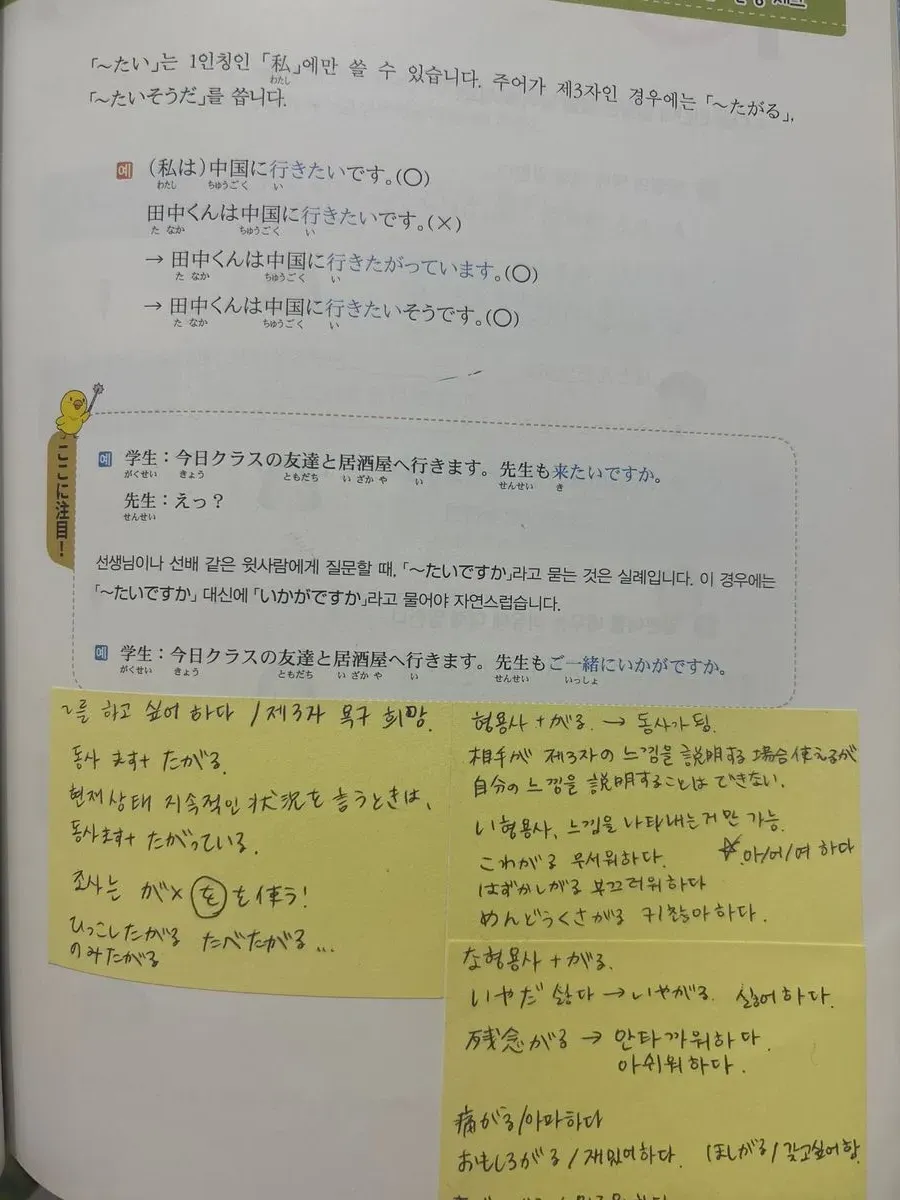 「~たい」는 1인칭인 「私」에만 쓸 수 있습니다. 주어가 제3자인 경우에는 「~たがる」,
わたし
「~たいそうだ」를 씁니다.
예 (私は)中国に行きたいです。(○)
わたし ちゅうごく い
田中くんは中国に行きたいです。(×)
た なか ちゅうごく い
→ 田中くんは中国に行きたがっています。(○)
た なか ちゅうごく い
→ 田中くんは中国に行きたいそうです。(○)
た なか ちゅうごく い
ここに注目!
예 学生:今日クラスの友達と居酒屋へ行きます。先生も来たいですか。
がくせい きょう ともだち い ざか や い せんせい き
先生:えっ?
せんせい
선생님이나 선배 같은 윗사람에게 질문할 때, 「~たいですか」라고 묻는 것은 실례입니다. 이 경우에는
「~たいですか」 대신에 「いかがですか」라고 물어야 자연스럽습니다.
예 学生:今日クラスの友達と居酒屋へ行きます。先生もご一緒にいかがですか。
がくせい きょう ともだち い ざか や い せんせい いっしょ
~를 하고 싶어 하다 / 제3자 욕구 희망.
동사 ます+ たがる.
현재 상태 지속적인 状況を言うときは、
동사ます+ たがっている.
조사는 が× を を使う!
ひっこしたがる たべたがる...
のみたがる
형용사 + がる. → 동사가 됨.
相手が 제3자의 느낌을 説明する 場合使えるが
自分の 느낌을 説明することは できない.
い형용사, 느낌을 나타내는거만 가능.
これがる 무서워하다. ☆.아/어/여 하다
はずかしがる 부끄러워하다
めんどうくさがる 귀찮아하다.
な형용사 + がる.
いやだ 싫다 → いやがる. 싫어하다.
残念がる → 안타까워하다.
아쉬워하다.
痛がる/아파하다
おもしろがる / 재밌어하다. ほしがる / 갖고싶어함.